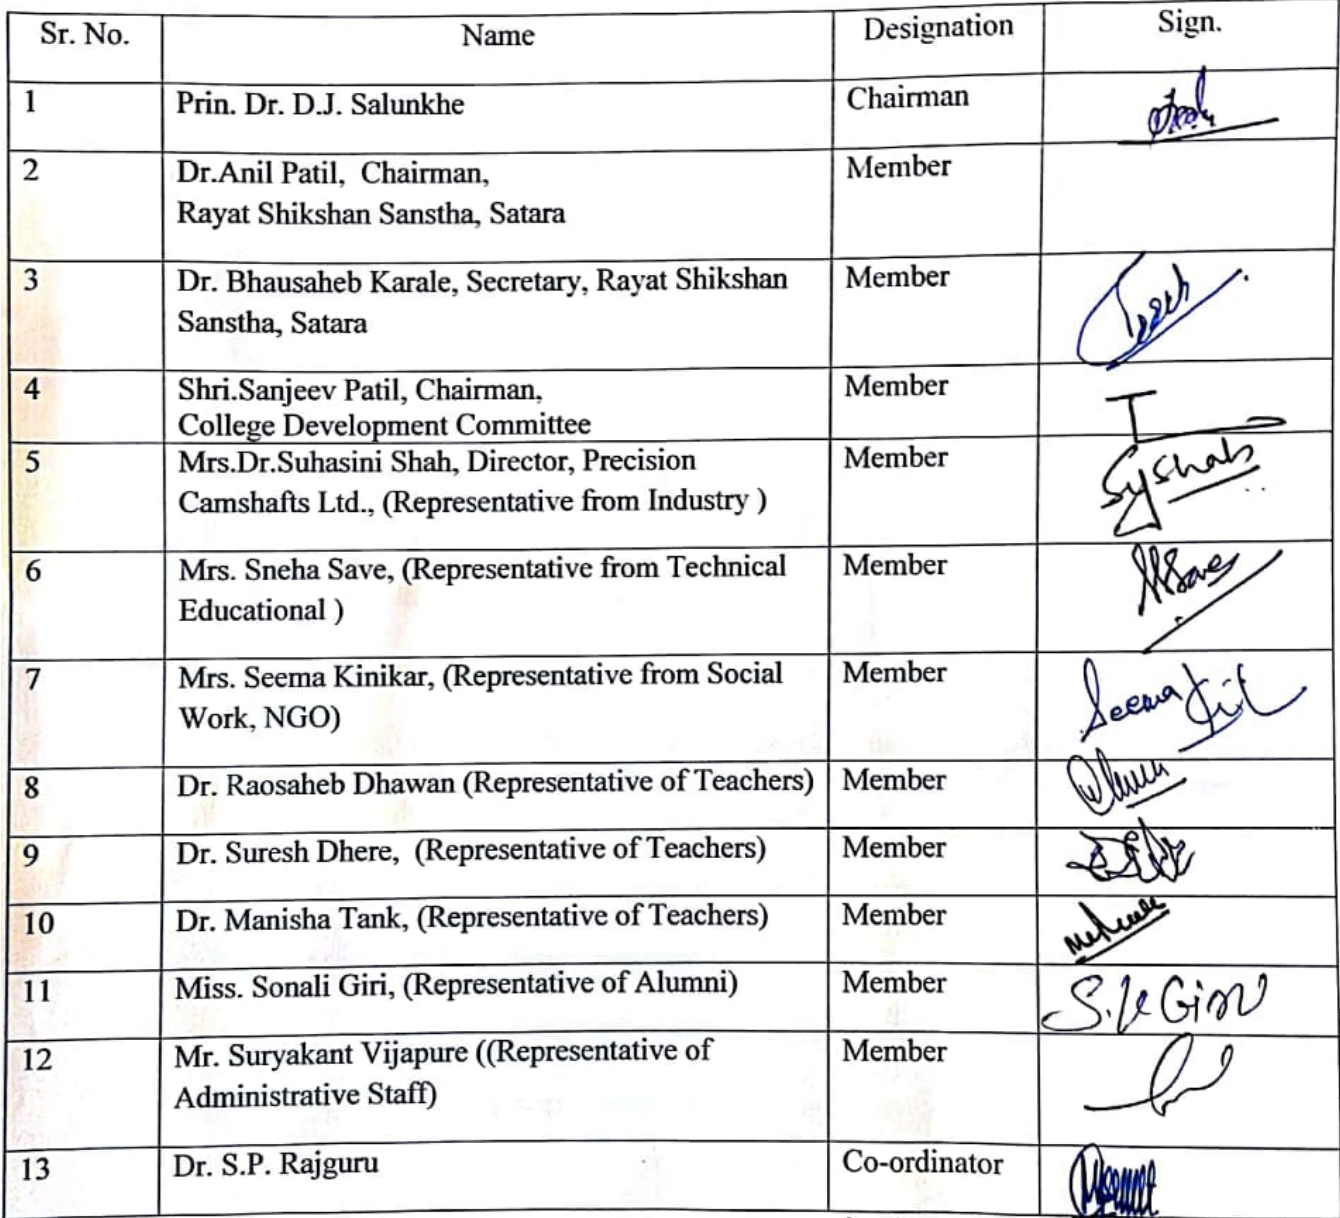 Sr. No. Name Designation Sign.
1 Prin. Dr. D.J. Salunkhe Chairman
2 Dr.Anil Patil, Chairman, Member
Rayat Shikshan Sanstha, Satara
3 Dr. Bhausaheb Karale, Secretary, Rayat Shikshan Member
Sanstha, Satara
4 Shri.Sanjeev Patil, Chairman, Member
College Development Committee
5 Mrs.Dr.Suhasini Shah, Director, Precision Member
Camshafts Ltd., (Representative from Industry )
6 Mrs. Sneha Save, (Representative from Technical Member
Educational )
7 Mrs. Seema Kinikar, (Representative from Social Member Seema
Work, NGO)
8 Dr. Raosaheb Dhawan (Representative of Teachers) Member
9 Dr. Suresh Dhere, (Representative of Teachers) Member
10 Dr. Manisha Tank, (Representative of Teachers) Member
11 Miss. Sonali Giri, (Representative of Alumni) Member
12 Mr. Suryakant Vijapure ((Representative of Member
Administrative Staff)
13 Dr. S.P. Rajguru Co-ordinator